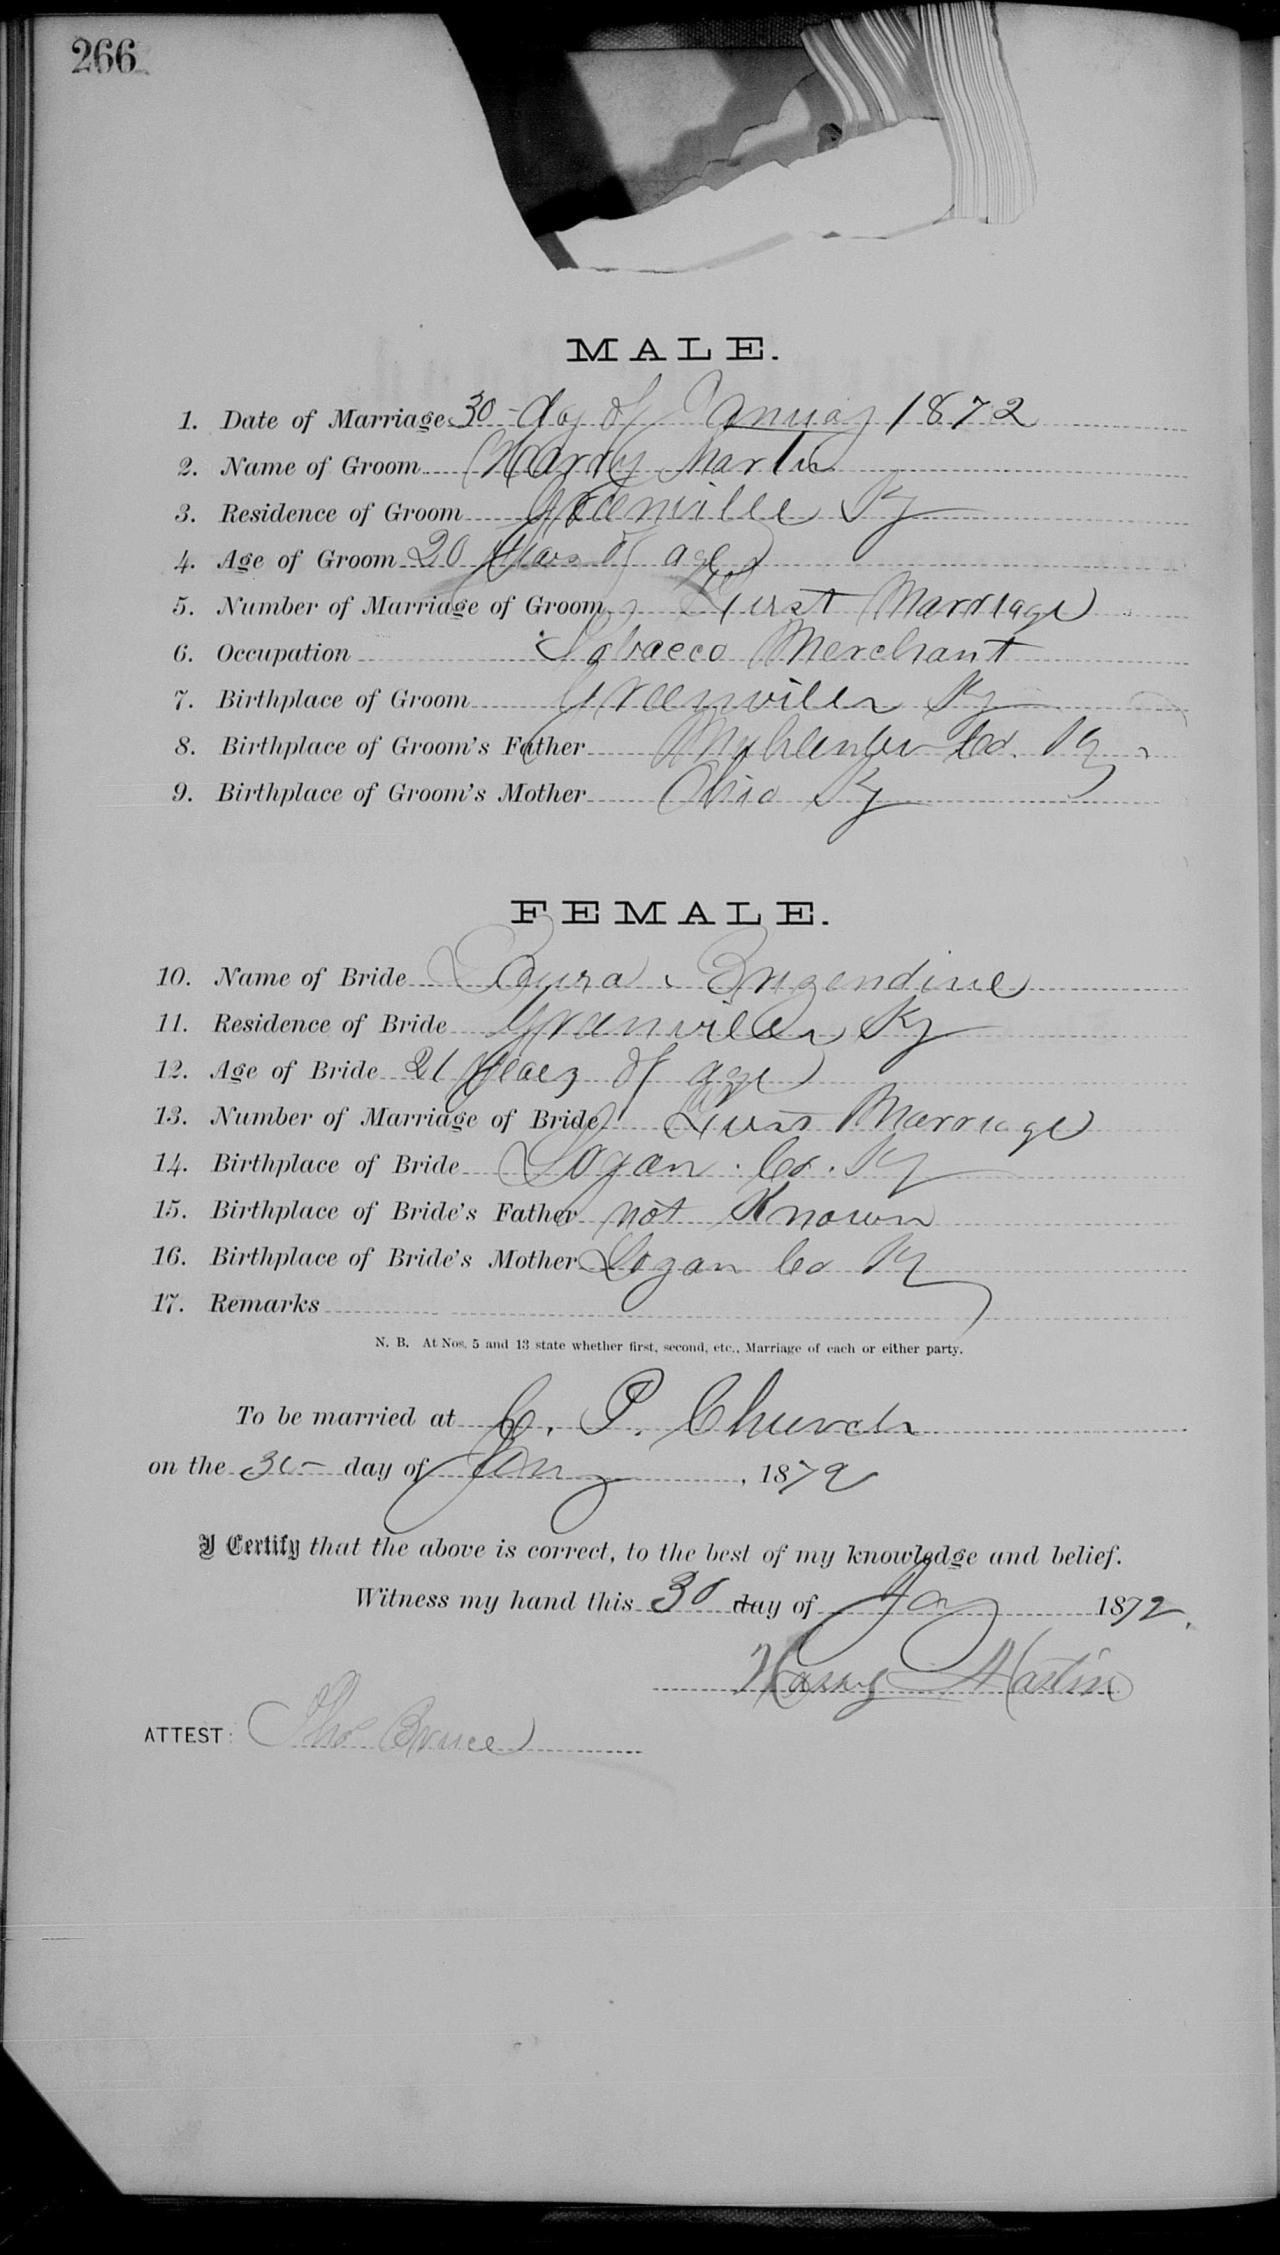 266
MALE.
1. Date of Marriage 30 - day of January 1872
2. Name of Groom Harry Martin
3. Residence of Groom Greenville Ky
4. Age of Groom 20 years of age
5. Number of Marriage of Groom, First Marriage
6. Occupation Tobacco Merchant
7. Birthplace of Groom Greenville Ky
8. Birthplace of Groom's Father Co. Ky
9. Birthplace of Groom's Mother Ohio Ky
FEMALE.
10. Name of Bride Brizendine
11. Residence of Bride Greenville Ky
12. Age of Bride 21 years of age
13. Number of Marriage of Bride, First Marriage
14. Birthplace of Bride Logan Co. Ky
15. Birthplace of Bride's Father not Known
16. Birthplace of Bride's Mother Logan Co Ky
17. Remarks
N. B. At Nos. 5 and 13 state whether first, second, etc., Marriage of each or either party.
To be married at C. P. Church
on the 30 - day of Jany, 1872
I Certify that the above is correct, to the best of my knowledge and belief.
Witness my hand this 30 day of Jay 1872.
Harry Martin
ATTEST: Tho Bruce